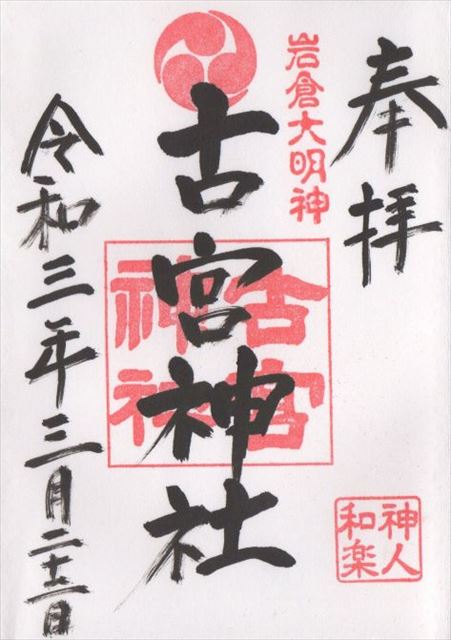 奉拝
岩倉大明神
古宮神社
古宮
神社
令和三年三月二十二日
神人
和楽